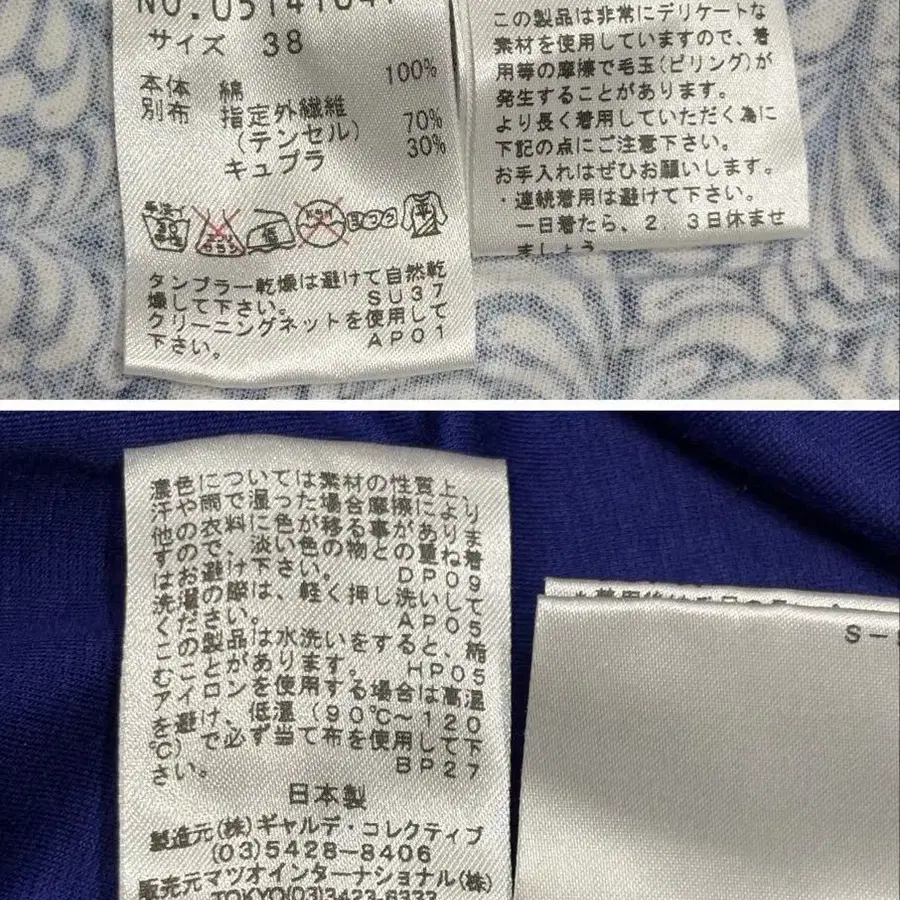 サイズ 38
本体 綿 100%
別布 指定外繊維
(テンセル) 70%
キュプラ 30%
タンブラー乾燥は避けて自然乾
燥して下さい。 SU37
クリーニングネットを使用して
下さい。 AP01
この製品は非常にデリケートな
素材を使用していますので、着
用等の摩擦で毛玉(ピリング)が
発生することがあります。
より長く着用していただく為に
下記の点にご注意下さい。
お手入れはぜひお願いします。
・連続着用は避けて下さい。
一日着たら、2、3日休ませ
ましょう
濃色については素材の性質上、
汗や雨で湿った場合摩擦により
他の衣料に色が移る事がありま
すので、淡い色の物との重ね着
はお避け下さい。 DP09
洗濯の際は、軽く押し洗いして
ください。 AP05
この製品は水洗いをすると、縮
むことがあります。 HP05
アイロンを使用する場合は高温
を避け、低温(90℃~120
℃)で必ず当て布を使用して下
さい。 BP27
日本製
製造元(株)ギャルデ・コレクティブ
(03)5428-8406
販売元マツオインターナショナル(株)
TOKYO(03)3423-6333